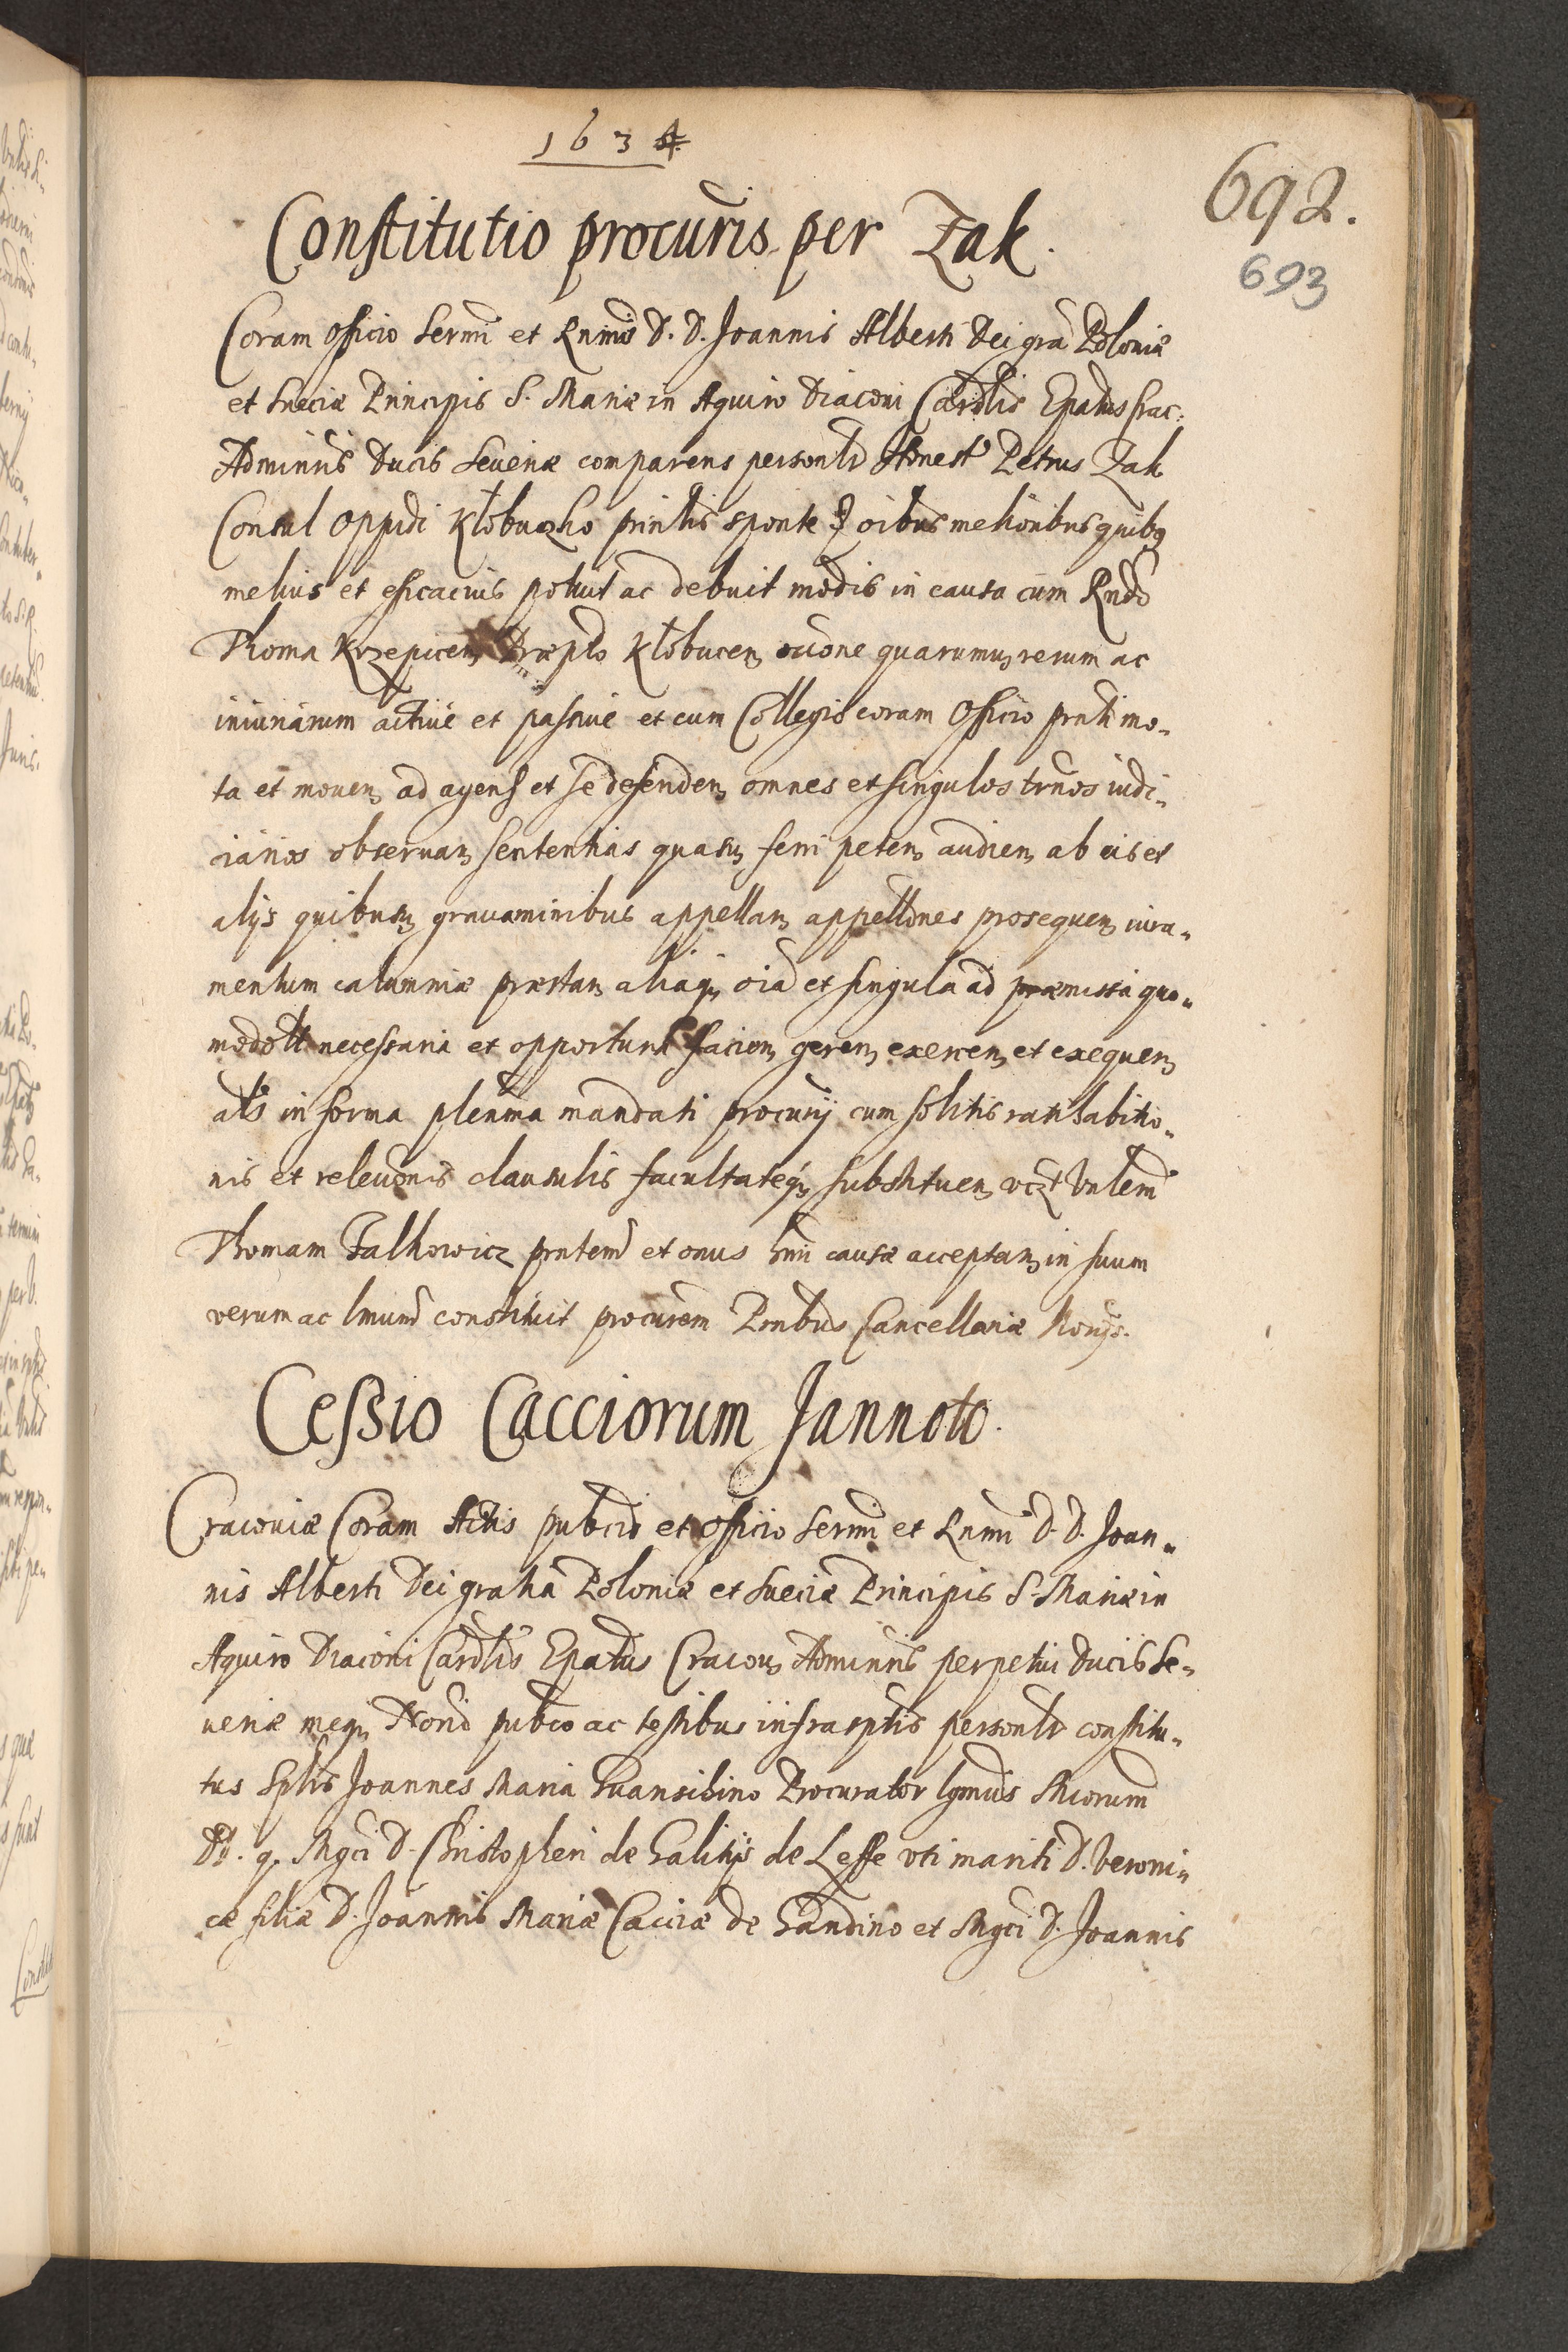 1634
692.
693
Constitutio procuris per Zak.
Coram officio Sermi et Rnmi D. D. Joannis Alberti Dei gra Poloniæ
et Sueciæ Principis S. Mariæ in Aquiro Diaconi Cardlis Epatus Crac:
Adminris Ducis Seueriæ comparens personlr Honest9 Petrus Zak
Consul oppidi Kłobuczko prinlis sponte oibus melioribus quibq
melius et efficacius potuit ac debuit modis in causa cum Rndo
Thoma Krzepicen Præpto Kłobucen rone quarumuis rerum ac
iniuriarum actiue et passiue et cum Collegis coram Officio prnti mo-
ta et mouen ad agend et se defenden omnes et singulos trnos iudi-
ciarios obseruan sententias quasuis ferri peten audien ab eis et
alijs quibusuis grauaminibus appellan appellones prosequen iura-
mentum calumniæ præstan aliaq oia et singula ad præmissa quo-
modolt necessaria et opportuna facien geren exercen et exequen
als in forma plenma mandati procurij cum solitis ratihabitio-
nis et releuonis clausulis facultateq substituen vczt Vnlem
Thomam Falkowicz prntem et onus hmi causæ acceptan in suum
verum ac lmum constituit procurem Prnbus Cancellariæ Norijs.
Cessio Cacciorum Jannoto.
Cracouiæ Coram Actis pubcis et officio Sermi et Rnmi D. D. Joan-
nis Alberti Dei gratia Poloniæ et Sueciæ Principis S. Mariæ in
Aquiro Diaconi Cardlis Epatus Cracou Adminris perpetui Ducis Se-
ueriæ meq Norio pubco ac testibus infrasptis personlr constitu-
tus Splis Joannes Maria Guansihino Procurator lgmus Mcorum
DD. q. Mgci D. Christopheri de Galitijs de Leffe vti mariti D. Veroni-
cæ filiæ D. Joannis Mariæ Cacciæ de Gandino et Mgci D. Joannis